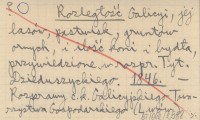 Rozległość Galicyi, jéj
lasów, pastwisk, gruntów
ornych, i ilość koni i bydła,
przywiedzione w rozpr. Tyt.
Dzieduszyckiego. 1846. –
Rozprawy c.k. Galicyjskiego Towa-
rzystwa Gospodarskiego (Lwów